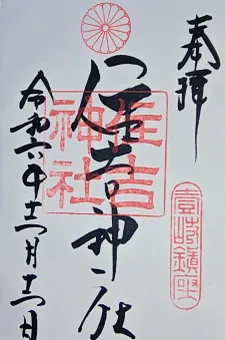 奉拝
壹岐鎮座
住吉神社
住吉神社
令和六年十一月十一日